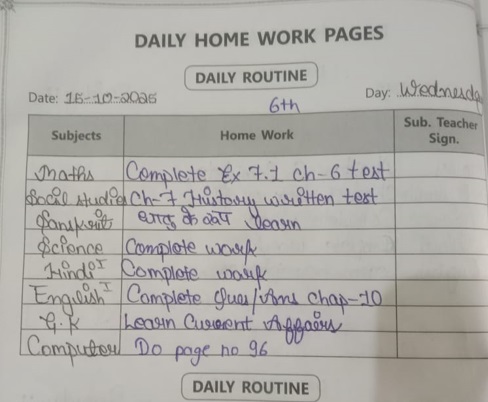 DAILY HOME WORK PAGES
DAILY ROUTINE
Date: 15-10-2025 6th Day: Wednesda
Subjects Home Work Sub. Teacher Sign.
Maths Complete Ex 7.1 ch-6 test
Socil studies Ch-7 History written test
Sanskrit धातु के रूप learn
Science Complete work
Hindi I Complete work
English I Complete Ques/Ans chap-10
G.K Learn Current Affairs
Computer Do page no 96
DAILY ROUTINE